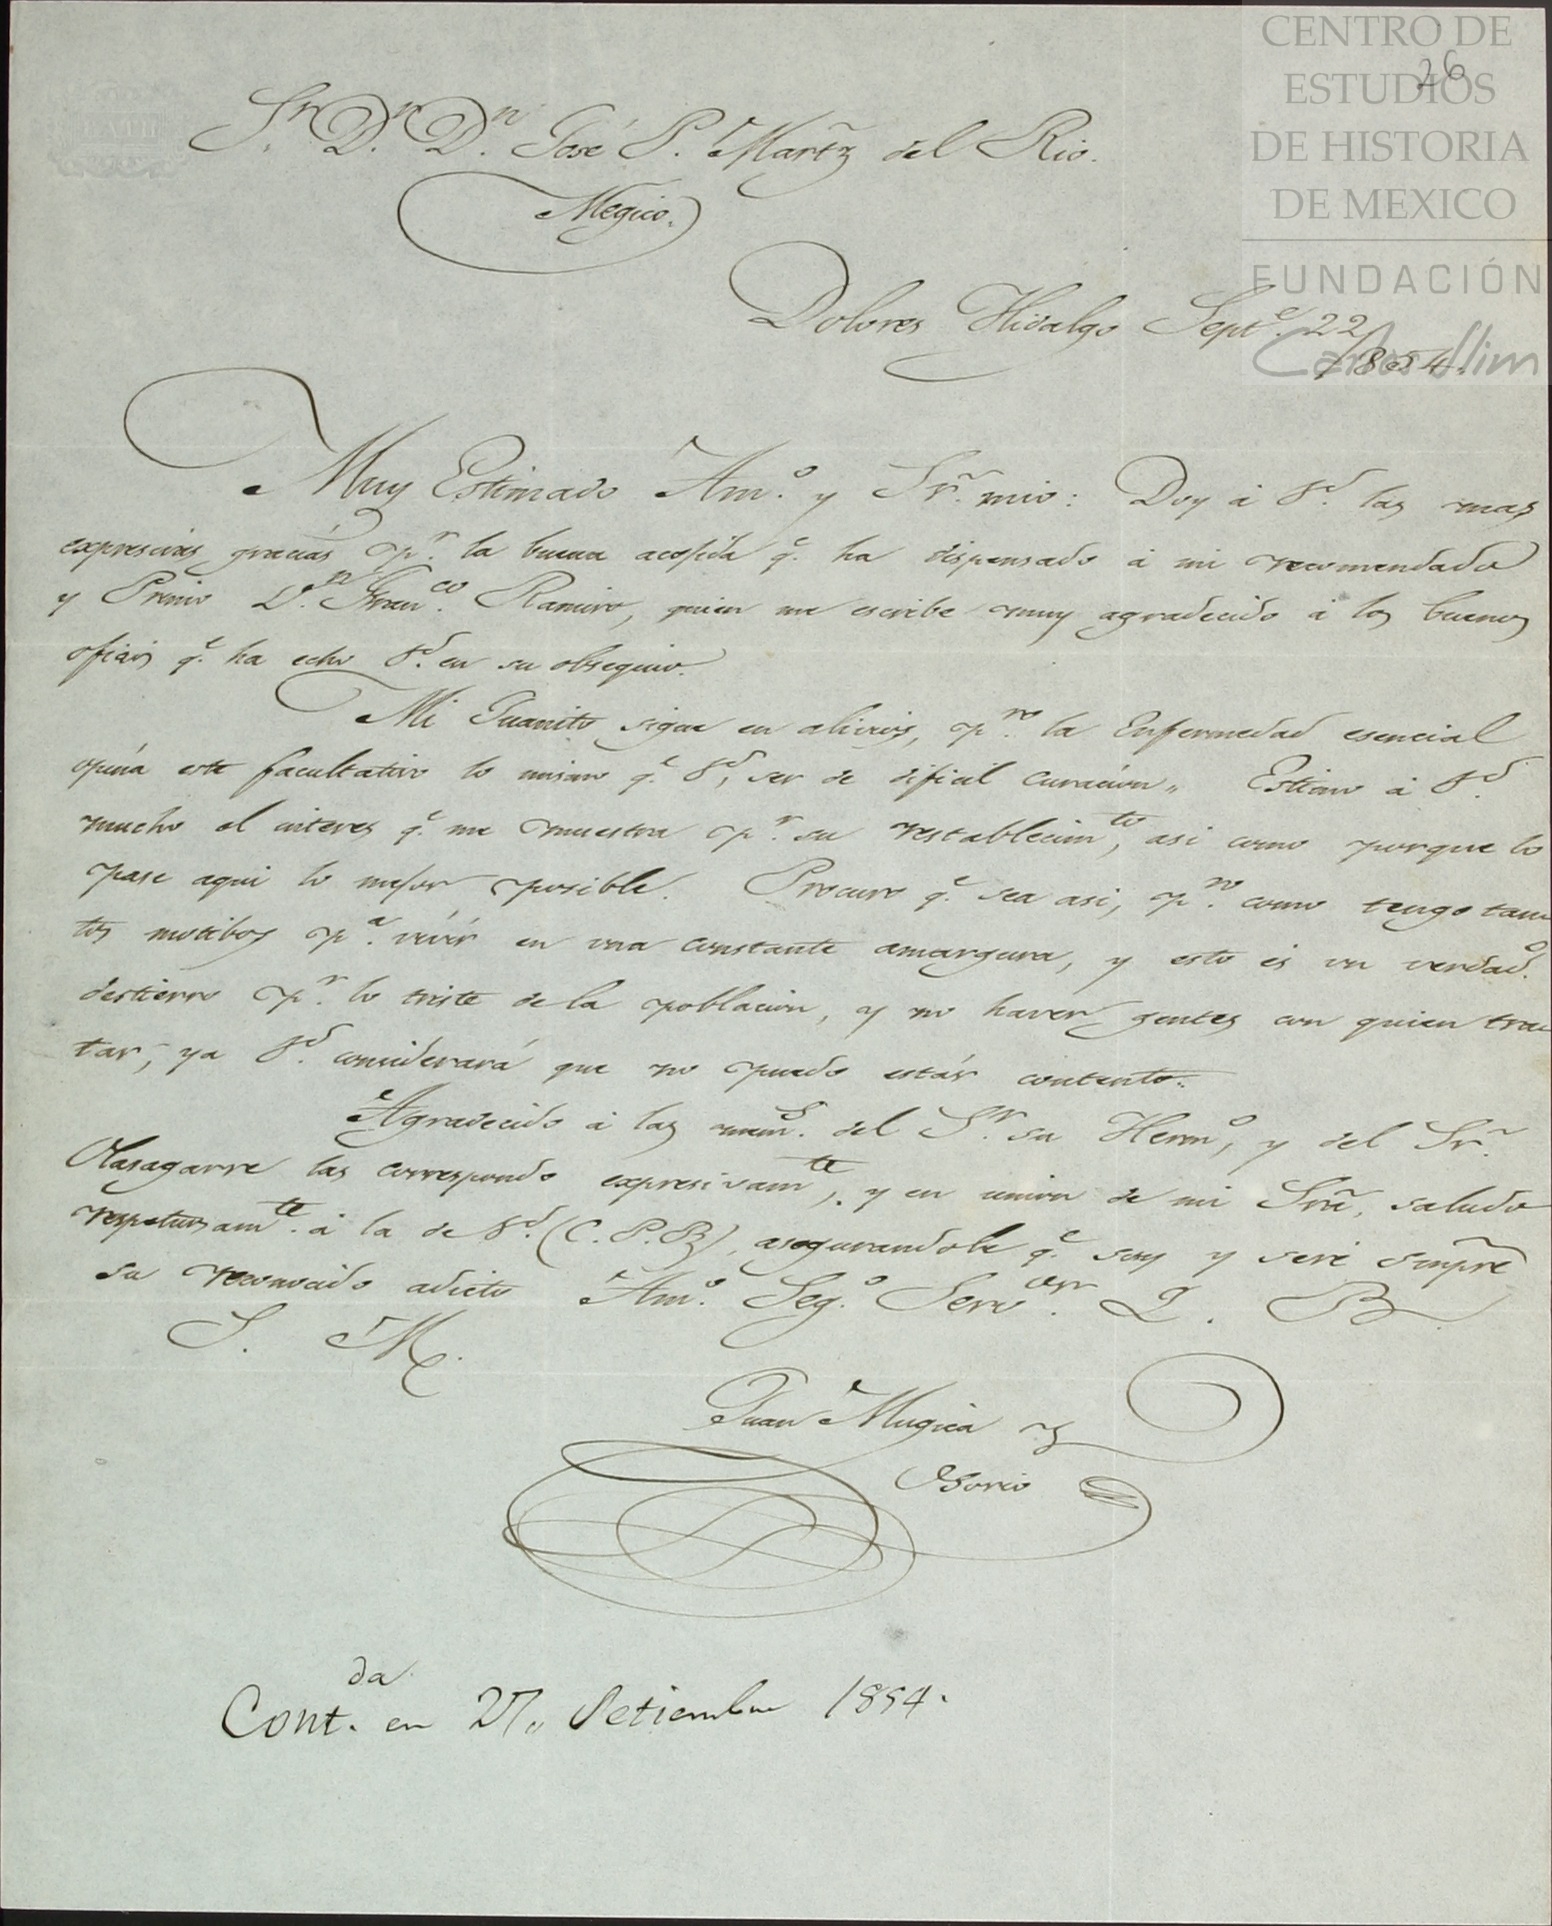 CENTRO DE
ESTUDIOS
DE HISTORIA
DE MEXICO
FUNDACIÓN
Carlos Slim
26
Sr. Dr. Dn. José P. Martz̃ del Rio.
Megico.
Dolores Hidalgo Septe. 22/
1854.
Muy Estimado Amo. y Sr. mio: Doy á Vd. las mas
expresivas gracias pr. la buena acojida qe. ha dispensado á mi recomendado
y Primo Dn. Franco. Ramiro, quien me escribe muy agradecido á los buenos
oficios qe. ha echo Vd. en su obsequio.
Mi Juanito sigue en alivios, pro. la Enfermedad esencial
opina este facultativo lo mismo qe. Vd, ser de dificil curacion,, Estimo á Vd.
mucho el interes qe. me muestra pr. su restablecimto, asi como porque lo
pase aqui lo mejor posible. Procuro qe. sea asi, pro. como tengo tan
tos motibos pa. vivír en una constante amargura, y esto es un verdado.
destierro pr. lo triste de la poblacion, y no haver gentes con quien tra
tar, ya Vd. considerará que no puedo estár contento.
Agradecido á las mems. del Sr. su Hermo, y del Sr.
Olasagarre las correspondo expresivamte, y en union de mi Srã, saludo
respetuosamte. á la de Vd. (C. P. B), asegurandole qe. soy y seré smprẽ
su reconocido adicto Amo. Sego. Servor. Q. B.
S. M.
Juan Mugica y
Osorio
Contda. en 27,, Setiembre 1854.